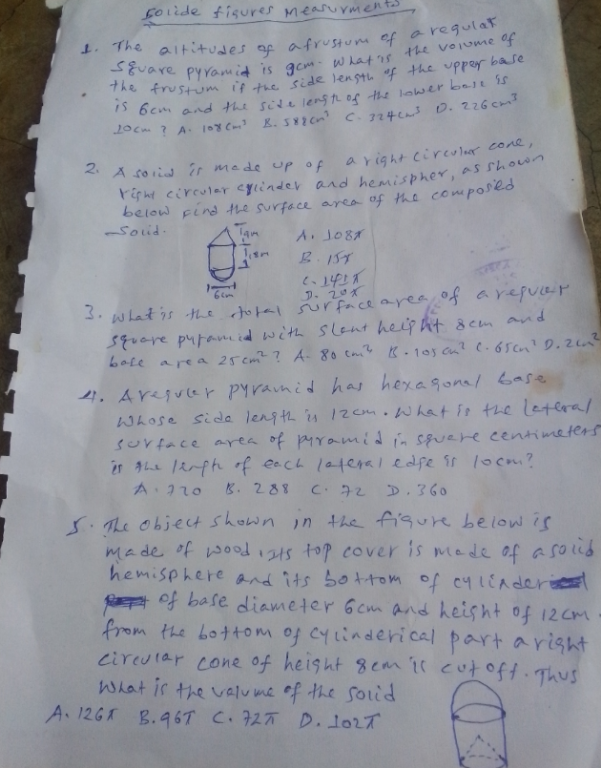 solide figures Measurments
1. The altitudes of a frustum of a regular
square pyramid is 9cm. What is the volume of
the frustum if the side length of the upper base
is 6cm and the side length of the lower base is
10cm? A. 108cm³ B. 588cm³ C. 324cm³ D. 226cm³
2. A solid is made up of a right circular cone,
right circular cylinder and hemispher, as shown
below find the surface area of the composed
solid.
A. 108π
B. 15π
C. 141π
D. 20π
6cm
3. What is the total surface area of a regular
square pyramid with slant height 8cm and
base area 25cm²? A. 80cm² B. 105cm² C. 65cm² D. 2cm²
4. A regular pyramid has hexagonal base
whose side length is 12cm. What is the lateral
surface area of pyramid in square centimeters
is the length of each lateral edge is 10cm?
A. 720 B. 288 C. 72 D. 360
5. The object shown in the figure below is
made of wood, its top cover is made of a solid
hemisphere and its bottom of cylinder
of base diameter 6cm and height of 12cm.
from the bottom of cylinderical part a right
circular cone of height 8cm is cut off. Thus
What is the valume of the solid
A. 126π B. 96π C. 72π D. 102π